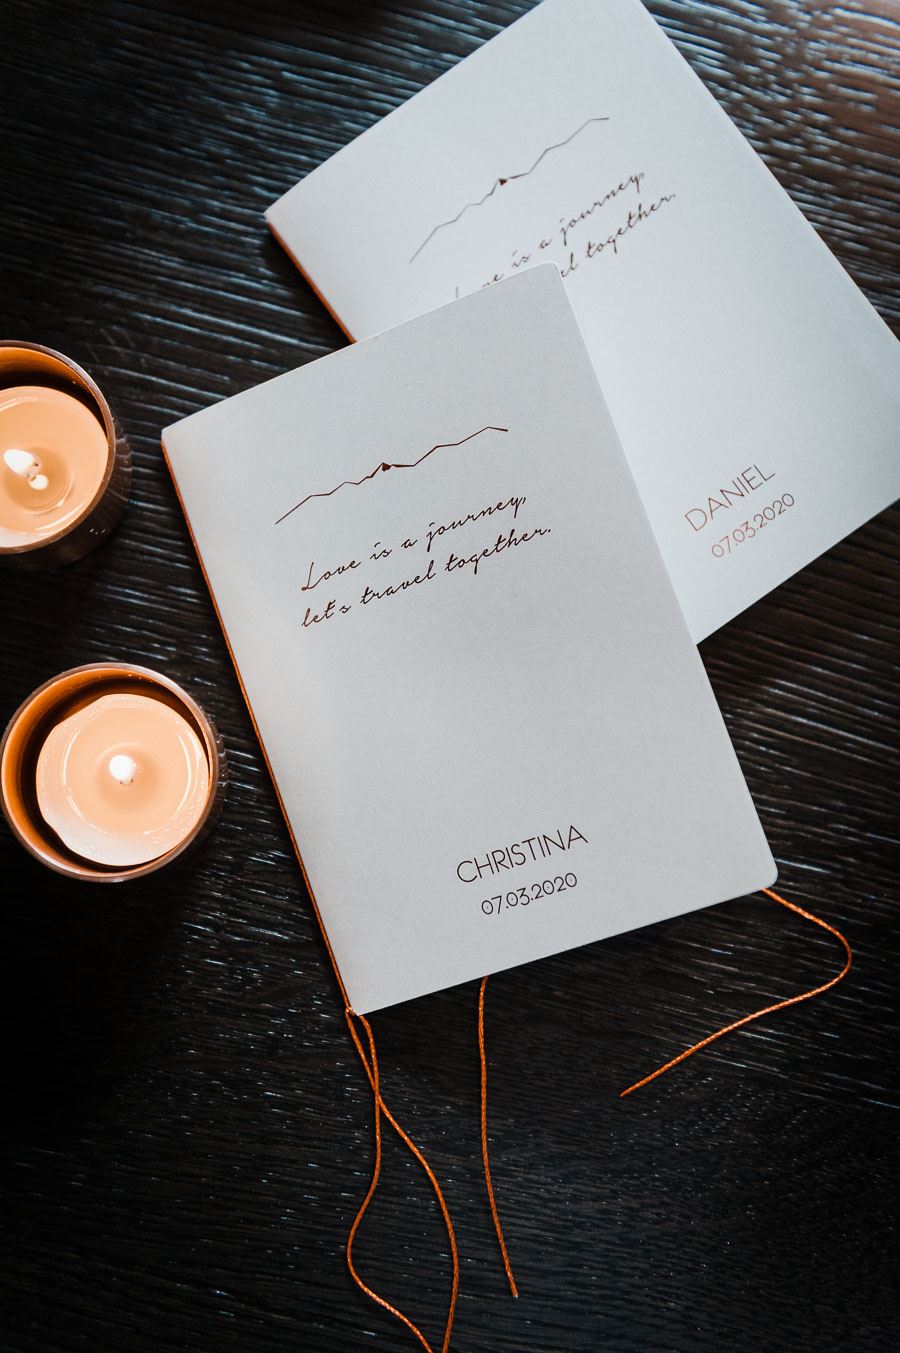 Love is a journey,
let's travel together.
CHRISTINA
07.03.2020
Love is a journey,
together.
DANIEL
07.03.2020